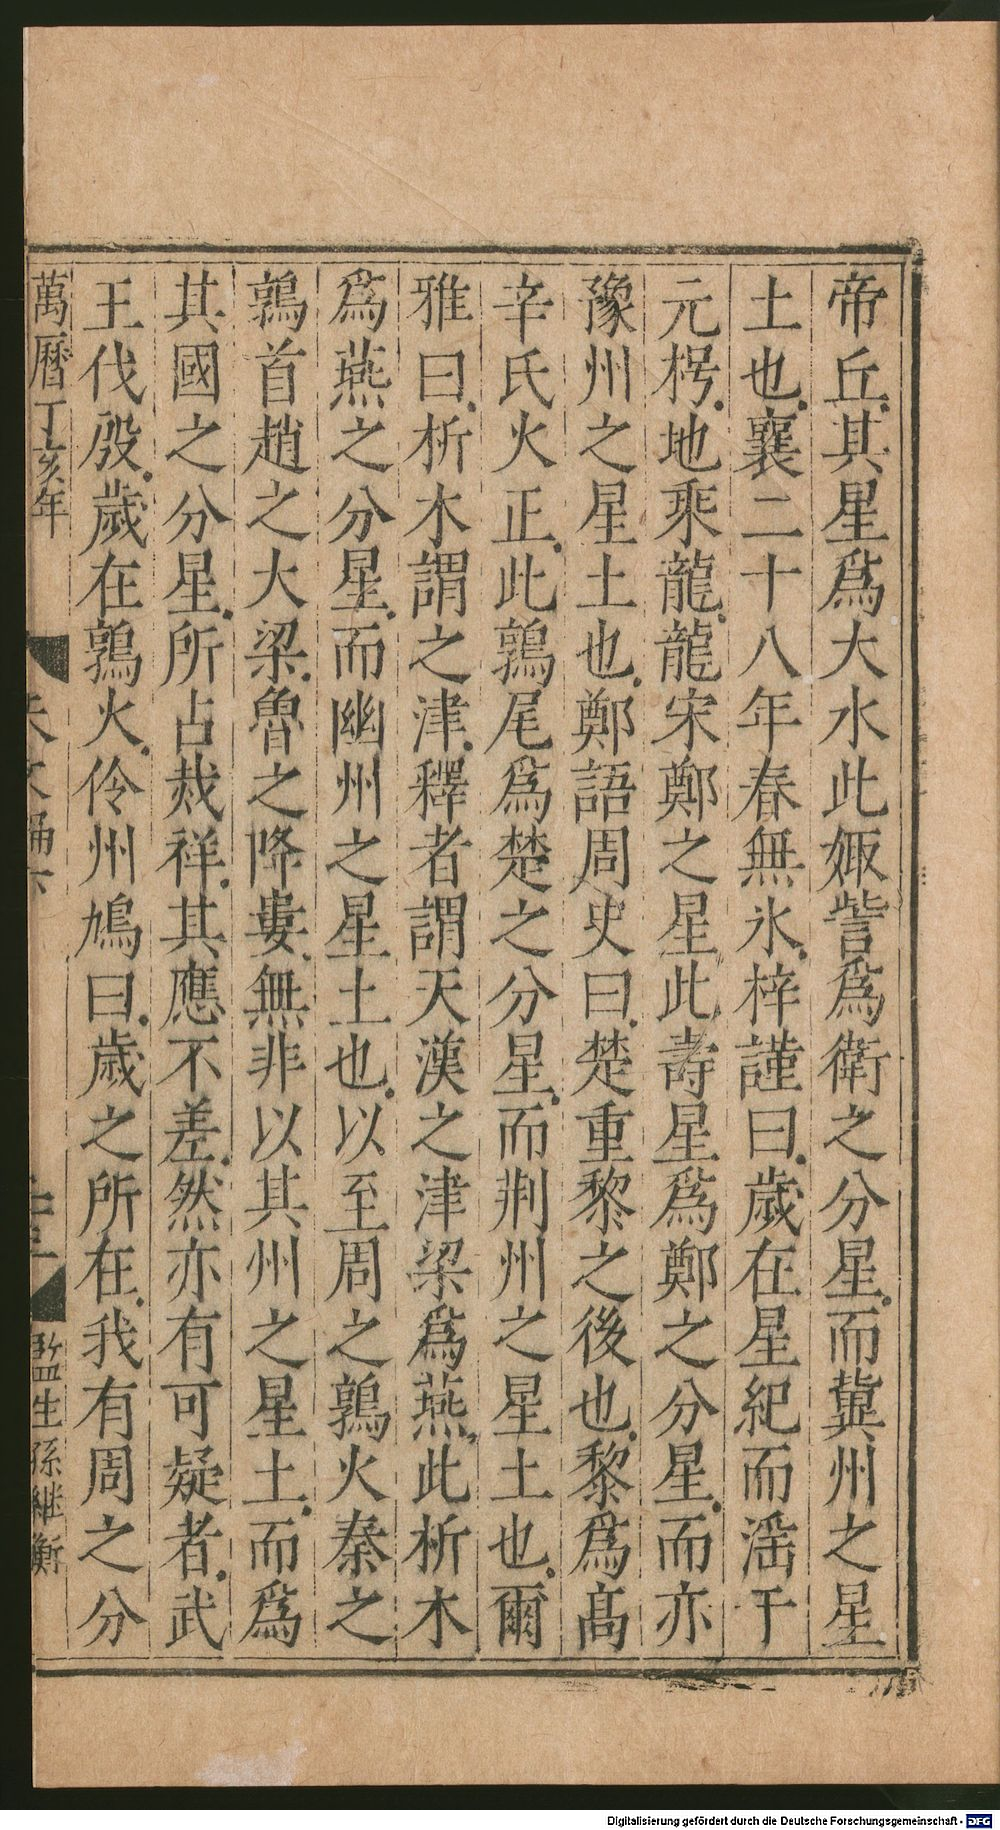 帝丘其星爲大水此娵訾爲衛之分星而冀州之星
土也襄二十八年春無氷梓謹曰歲在星紀而滛于
元枵地乘龍龍宋鄭之星此壽星爲鄭之分星而亦
豫州之星土也鄭語周史曰楚重黎之後也黎爲髙
辛氏火正此鶉尾爲楚之分星而荆州之星土也爾
雅曰析木謂之津釋者謂天漢之津梁爲燕此析木
爲燕之分星而幽州之星土也以至周之鶉火秦之
鶉首趙之大梁魯之降婁無非以其州之星土而爲
其國之分星所占烖祥其應不差然亦有可疑者武
王伐殷歲在鶉火伶州鳩曰歲之所在我有周之分
萬曆丁亥年
監生孫継衡
Digitalisierung gefördert durch die Deutsche Forschungsgemeinschaft - DFG